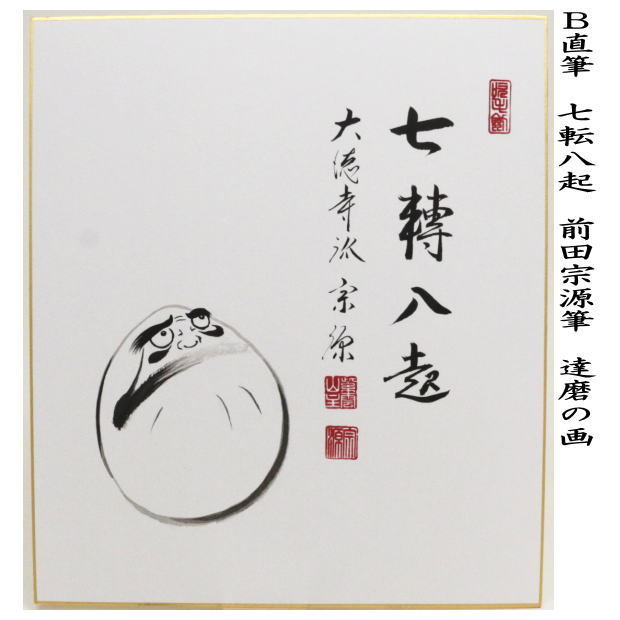 B直筆 七転八起 前田宗源筆 達磨の画
七轉八起
大徳寺派 宗源
宗源